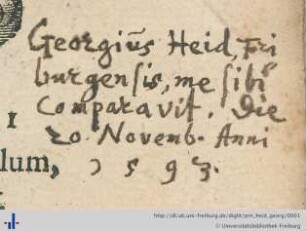 Georgiūs Heid, Fri
burgensis, me sibi
Comparavit. Die
20. Novemb. Anni
1593.
I
lum,
http://dl.ub.uni-freiburg.de/diglit/prn_heid_georg/0001
© Universitätsbibliothek Freiburg